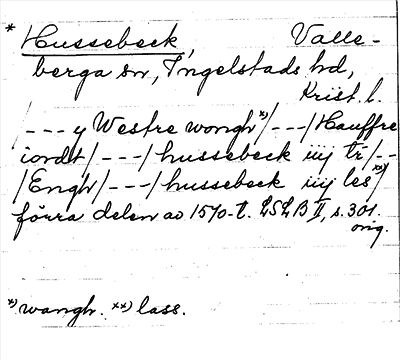 * Hussebeck, Valle-
berga sn, Ingelstads hd,
Krist. l.
/--- y Westre wongh x)/---/Hauffre
iordt/---/hussebeck iiij tr/--
/Engh/---/hussebeck iiij les xx)/
förra delen av 1570-t. LSLB II, s. 301.
orig.
x) wangh. xx) lass.